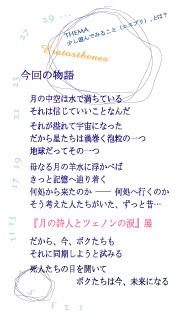 THEMA
少し遊んでみること(エスプリ)、とは?
Eratosthenes
今回の物語
月の中空は水で満ちている
それは信じていいことなんだ
それが溢れて宇宙になった
だから星たちは渦巻く泡粒の一つ
地球だってその一つ
母なる月の羊水に浮かべば
きっと記憶へ辿り着く
何処から来たのか ── 何処へ行くのか
そう考えた人たちがいた、ずっと昔…
『月の詩人とツェノンの涙』展
だから、今、ボクたちも
それに同期しようと試みる
死人たちの目を開いて
ボクたちは今、未来になる